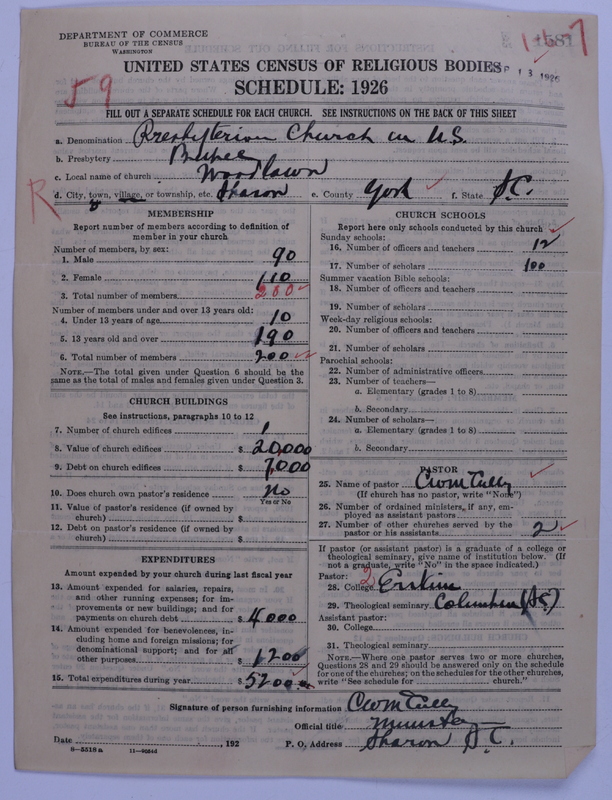 DEPARTMENT OF COMMERCE
BUREAU OF THE CENSUS
WASHINGTON
UNITED STATES CENSUS OF RELIGIOUS BODIES
SCHEDULE: 1926
59
FILL OUT A SEPARATE SCHEDULE FOR EACH CHURCH. SEE INSTRUCTIONS ON THE BACK OF THIS SHEET
a. Denomination Presbyterian Church in U.S.
b. Presbytery
c. Local name of church Woodlawn
d. City, town, village, or township, etc. Sharon e. County York f. State S.C.
R
MEMBERSHIP
Report number of members according to definition of member in your church
Number of members, by sex:
1. Male 90
2. Female 110
3. Total number of members 200
Number of members under and over 13 years old:
4. Under 13 years of age 10
5. 13 years old and over 190
6. Total number of members 200
NOTE.—The total given under Question 6 should be the
same as the total of males and females given under Question 3.
CHURCH BUILDINGS
See instructions, paragraphs 10 to 12
7. Number of church edifices 1
8. Value of church edifices $ 20,000
9. Debt on church edifices $ 7,000
10. Does church own pastor's residence No
Yes or No
11. Value of pastor's residence (if owned by
church) $
12. Debt on pastor's residence (if owned by
church) $
EXPENDITURES
Amount expended by your church during last fiscal year
13. Amount expended for salaries, repairs,
and other running expenses; for im-
provements or new buildings; and for
payments on church debt $ 4000
14. Amount expended for benevolences, in-
cluding home and foreign missions; for
denominational support; and for all
other purposes $ 1200
15. Total expenditures during year $ 5200
CHURCH SCHOOLS
Report here only schools conducted by this church
Sunday schools:
16. Number of officers and teachers 12
17. Number of scholars 100
Summer vacation Bible schools:
18. Number of officers and teachers
19. Number of scholars
Week-day religious schools:
20. Number of officers and teachers
21. Number of scholars
Parochial schools:
22. Number of administrative officers
23. Number of teachers—
a. Elementary (grades 1 to 8)
b. Secondary
24. Number of scholars—
a. Elementary (grades 1 to 8)
b. Secondary
PASTOR
25. Name of pastor CWM Tully
(If church has no pastor, write "None")
26. Number of ordained ministers, if any, em-
ployed as assistant pastors
27. Number of other churches served by the
pastor or his assistants 2
If pastor (or assistant pastor) is a graduate of a college or
theological seminary, give name of institution below. (If
not a graduate, write "No" in the space indicated.)
Pastor:
28. College 2 Erskine
29. Theological seminary Columbia (S.C.)
Assistant pastor:
30. College
31. Theological seminary
NOTE.—Where one pastor serves two or more churches,
Questions 28 and 29 should be answered only on the schedule
for one of the churches; on the schedules for the other churches,
write "See schedule for church."
Signature of person furnishing information CWM Tully
Official title Minister
Date , 192 P. O. Address Sharon S.C.
8—5518a 11—9054d